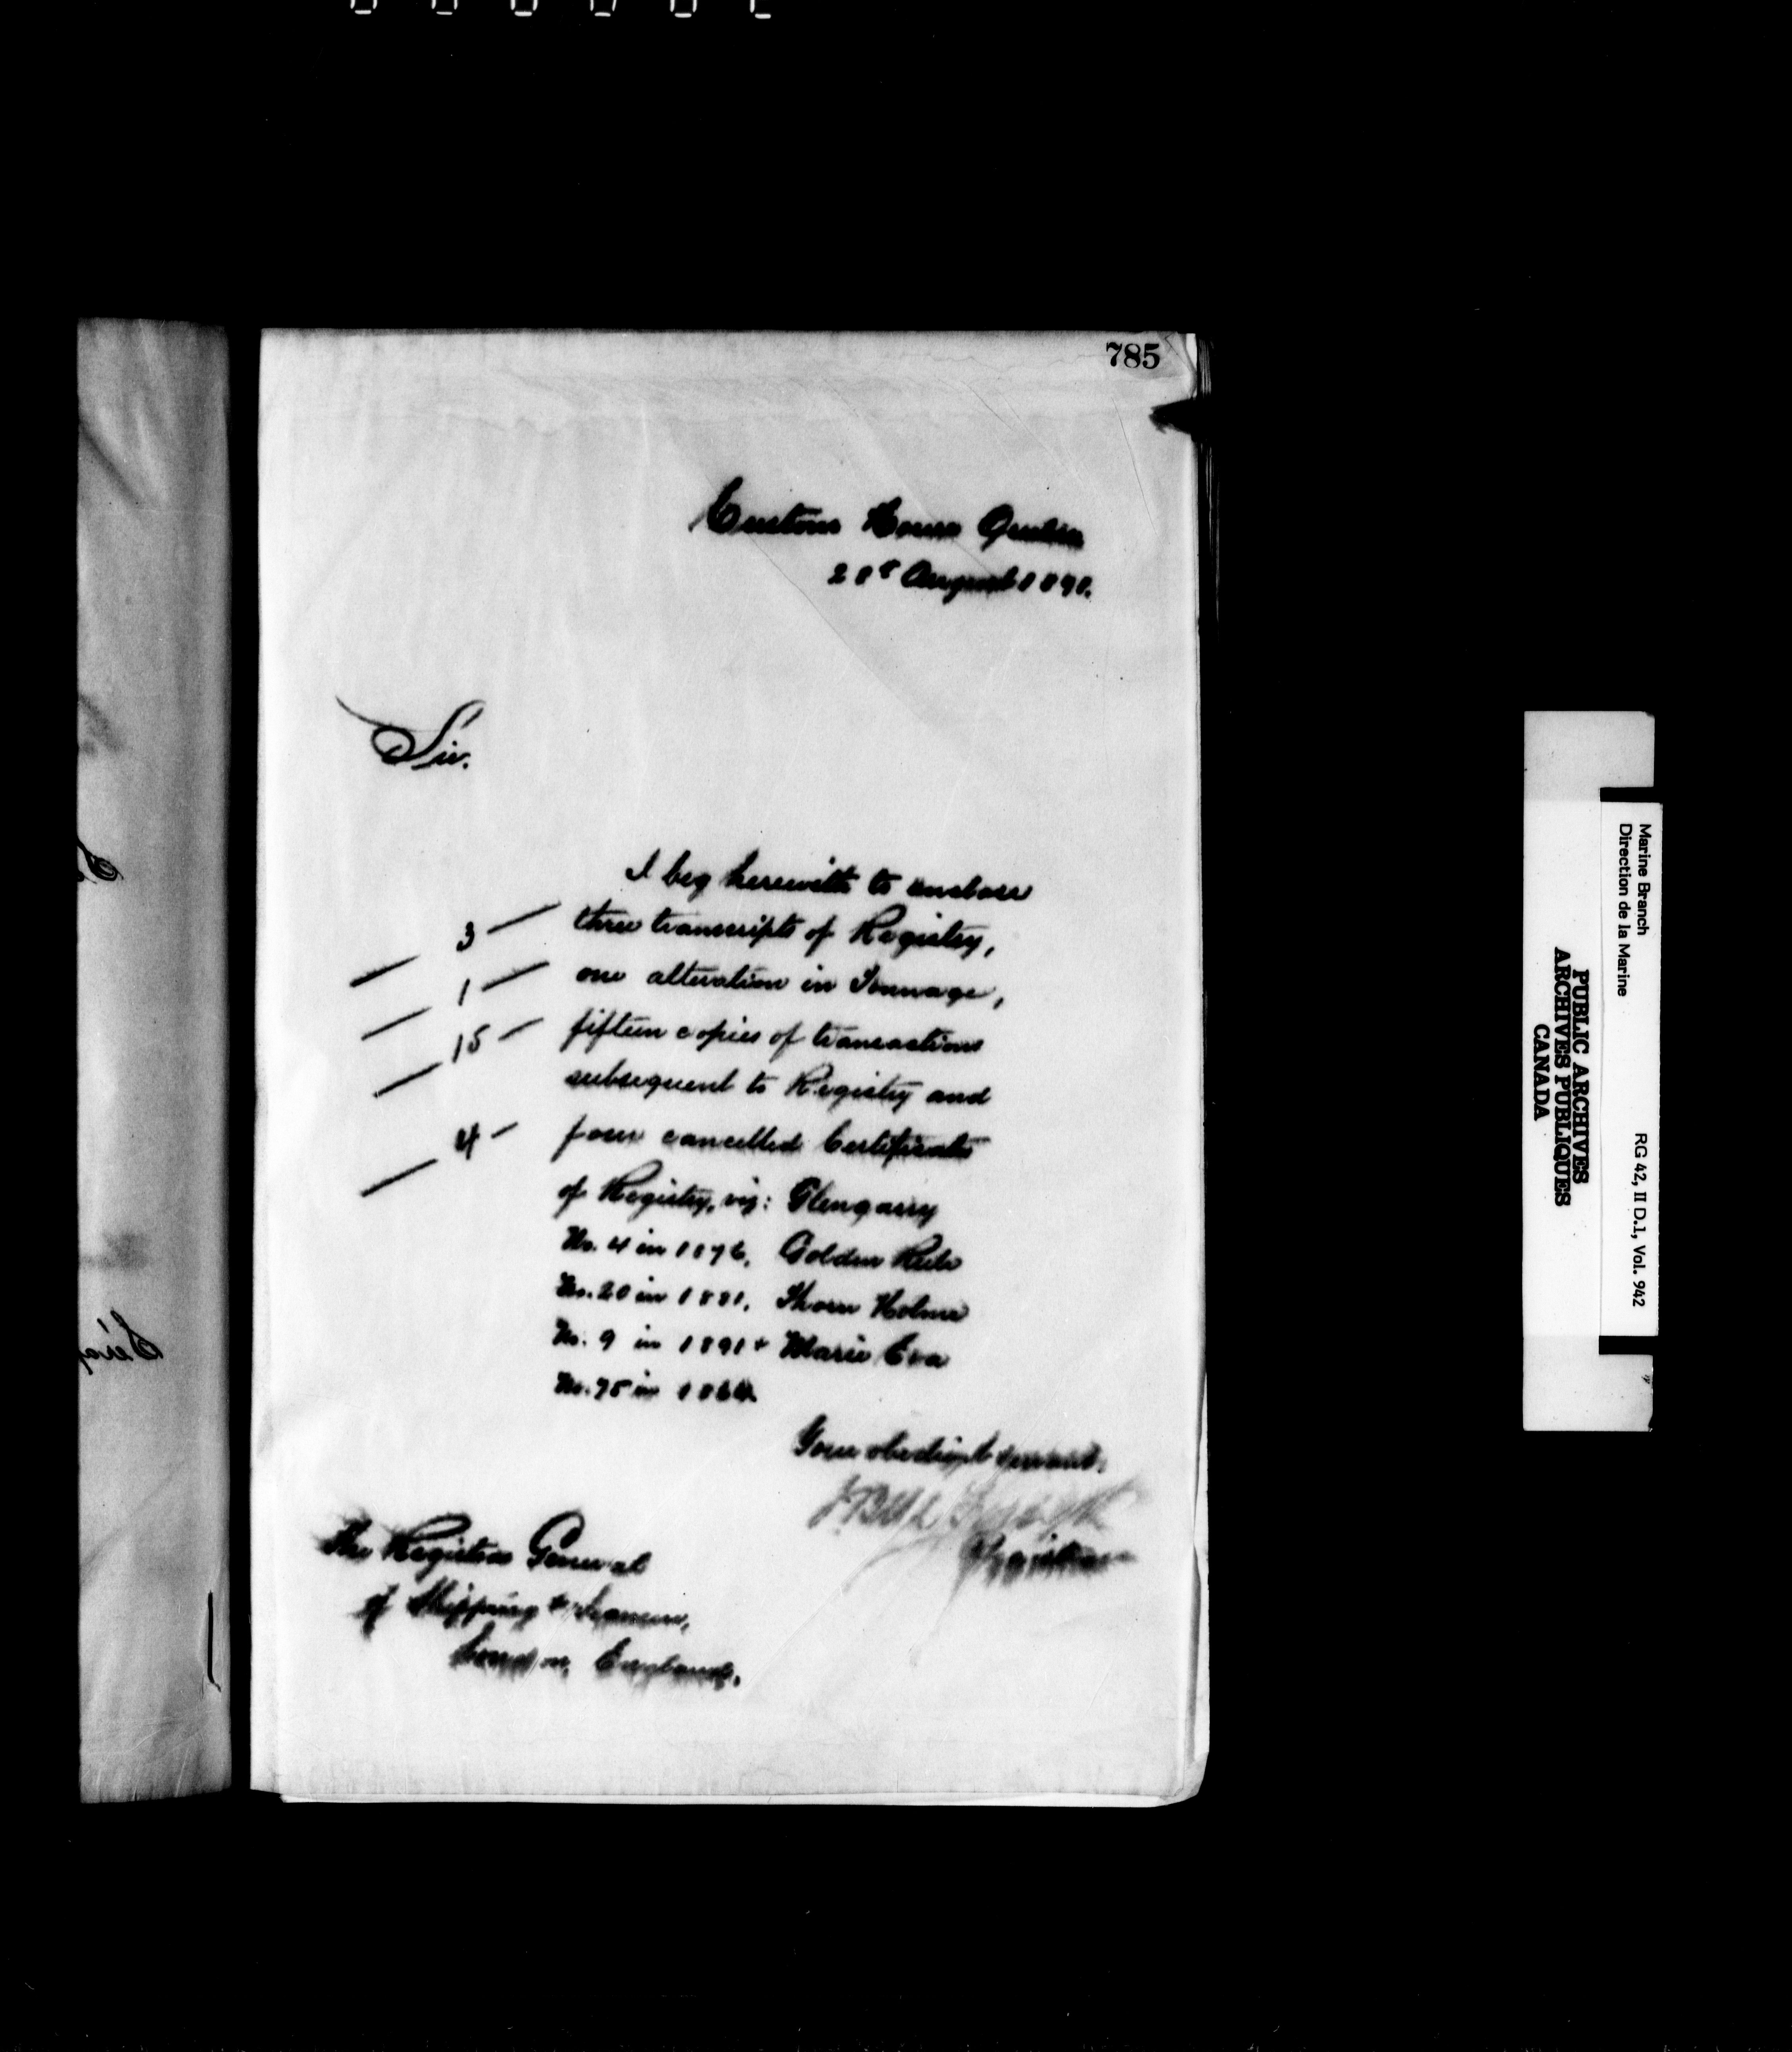 785
Customs House Quebec
28t August 1891.
Sir.
I beg herewith to enclose
3 — three transcripts of Registry,
1 — one alteration in Tonnage,
15 — fifteen copies of transactions
subsequent to Registry and
4 — four cancelled Certificates
of Registry, viz: Glengarry
No. 4 in 1876, Golden Rule
No. 20 in 1881, Thorn Holme
No. 9 in 1891 & Marie Eva
No. 75 in 1864.
Your obedient servant,
Registrar
The Registrar General
of Shipping & Seamen,
London, England.
Marine Branch
Direction de la Marine
RG 42, II D.1, Vol. 942
PUBLIC ARCHIVES
ARCHIVES PUBLIQUES
CANADA